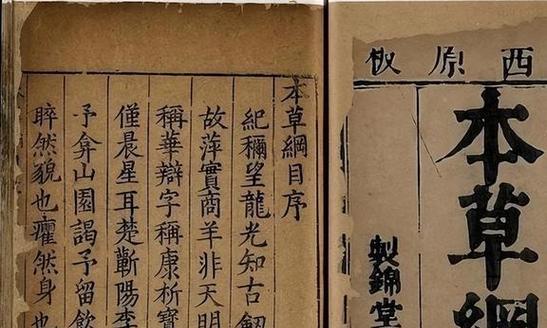 西原板
本草綱
製錦堂
本草綱目序
紀穪望龍光知古
故萍實商羊非天明
稱華辯字稱康析寶
僅晨星耳楚蘄陽李
予弇山園謁予留飲
睟然貌也癯然身也